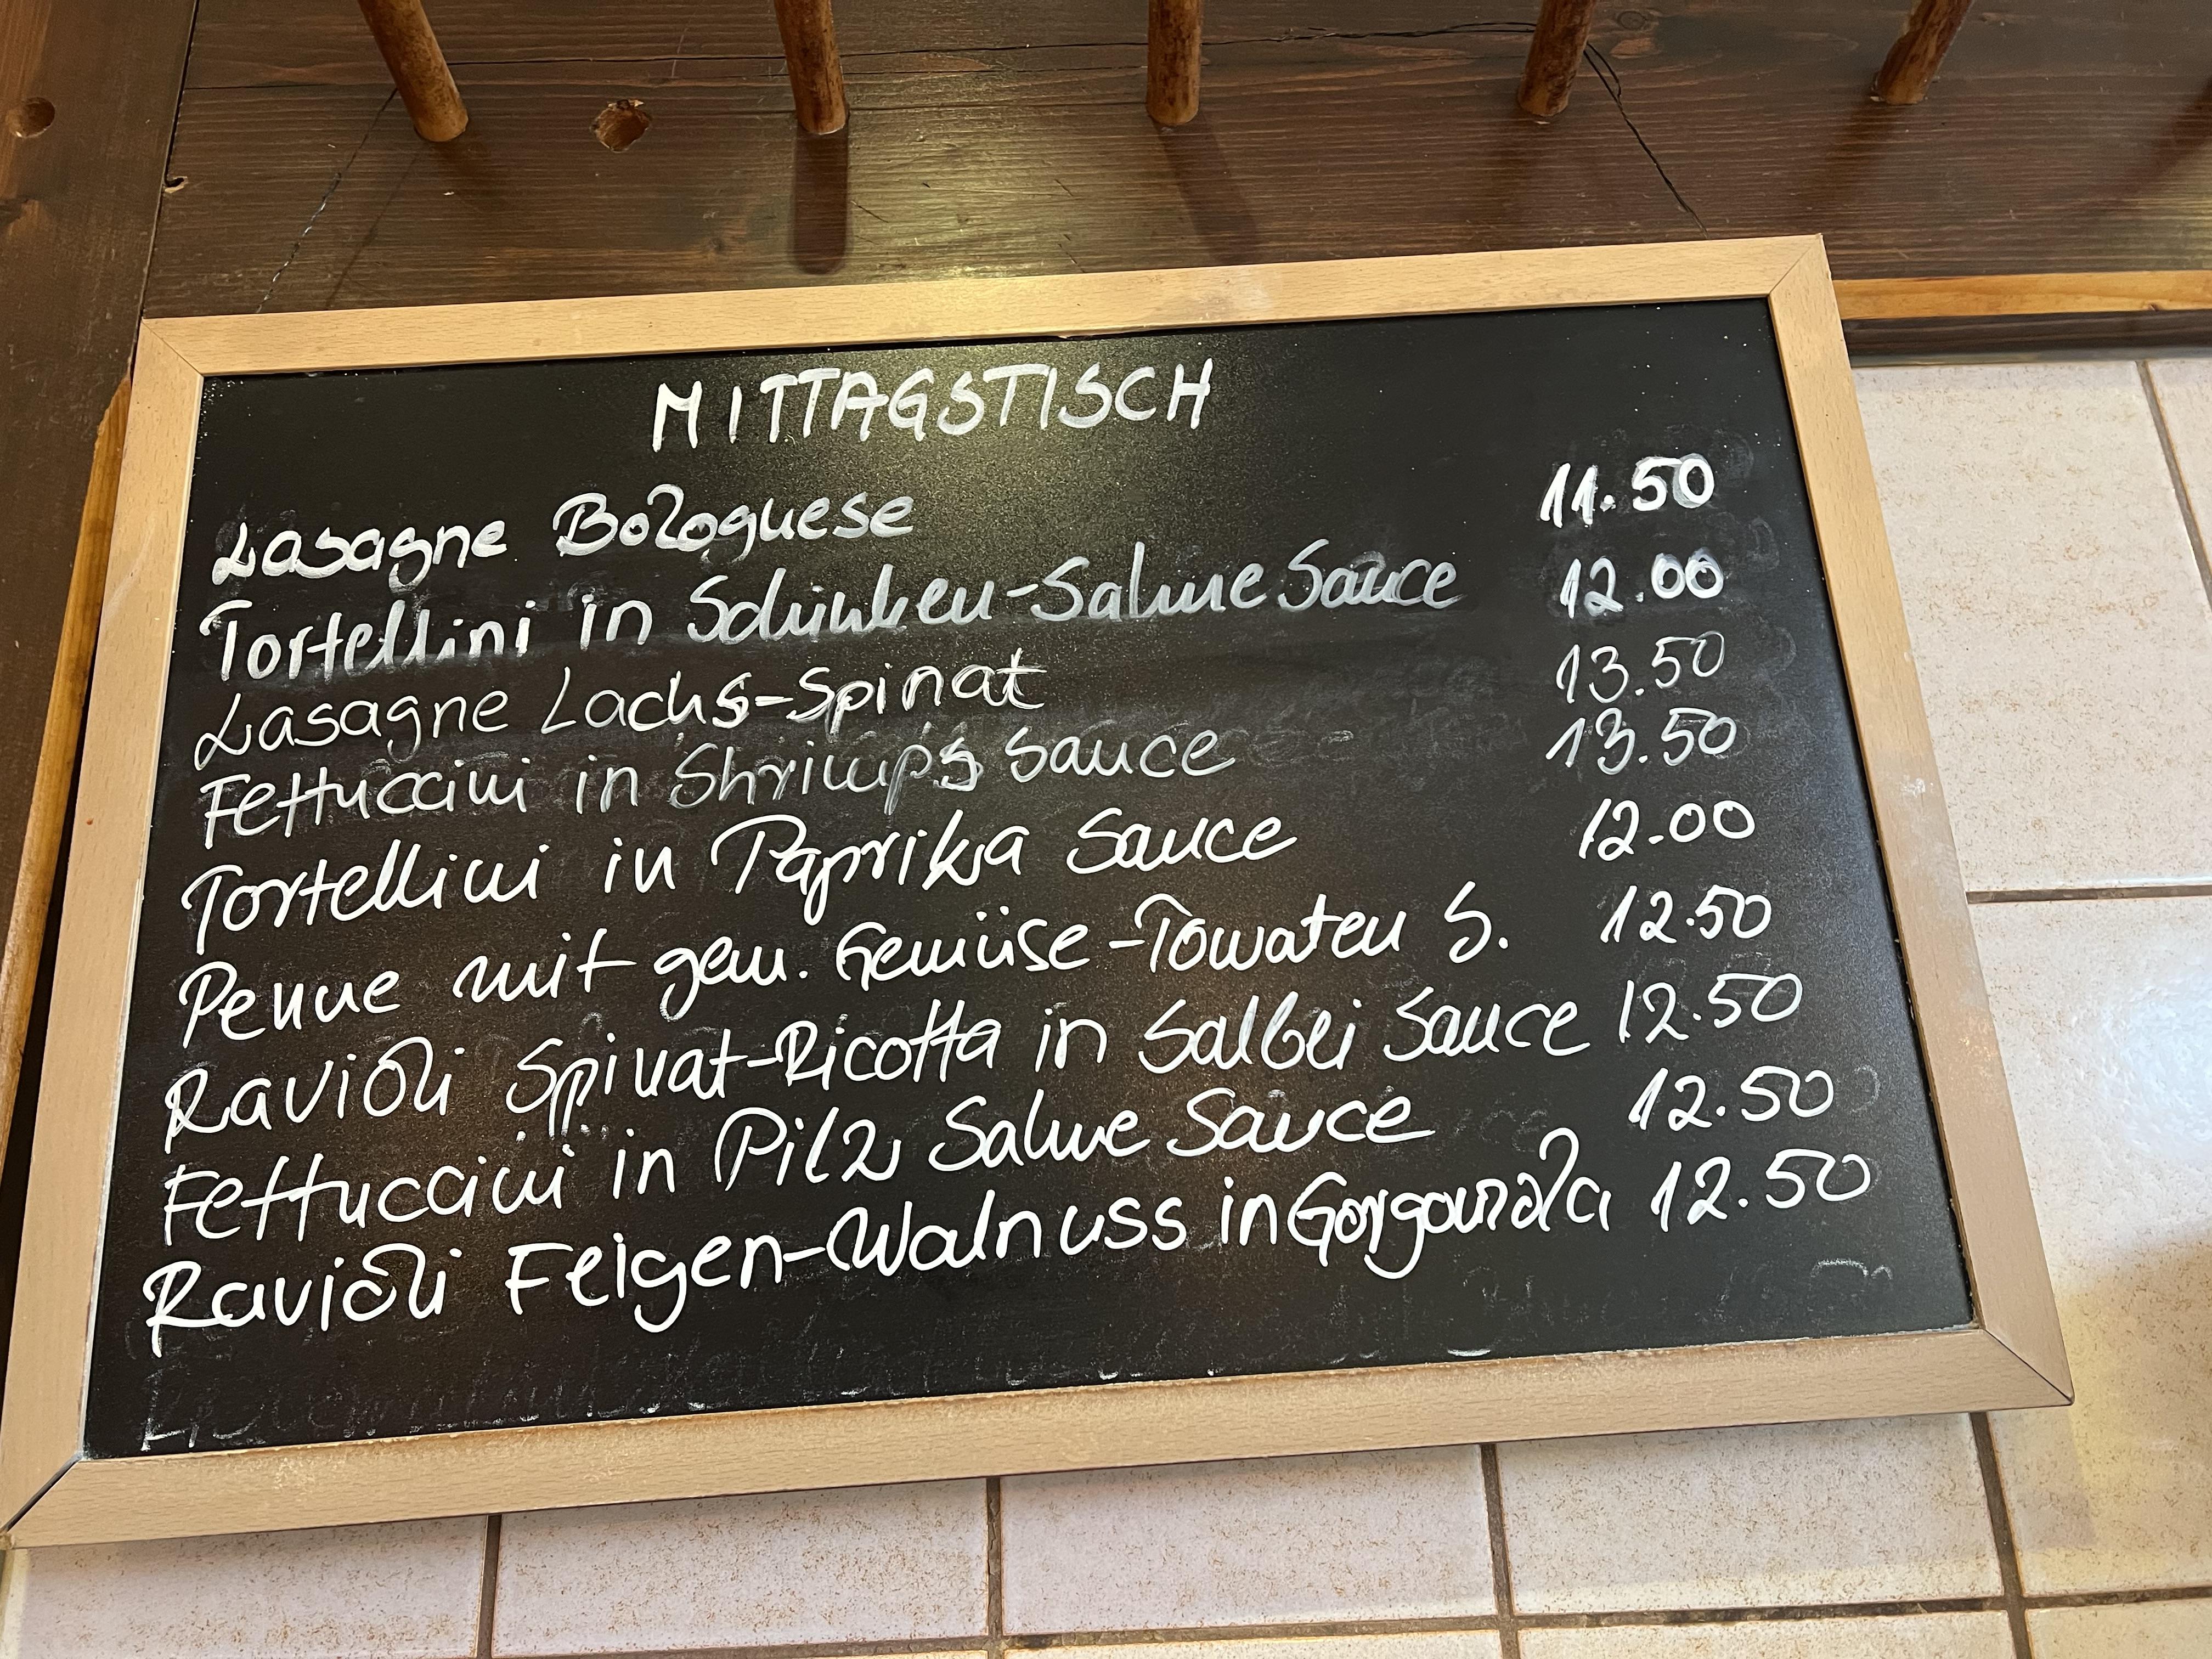 MITTAGSTISCH
Lasagne Bolognese 11.50
Tortellini in Schinken-Sahne Sauce 12.00
Lasagne Lachs-Spinat 13.50
Fettuccini in Shrimps Sauce 13.50
Tortellini in Paprika Sauce 12.00
Penne mit gem. Gemüse-Tomaten S. 12.50
Ravioli Spinat-Ricotta in Salbei Sauce 12.50
Fettuccini in Pilz Sahne Sauce 12.50
Ravioli Feigen-Walnuss in Gorgonzola 12.50